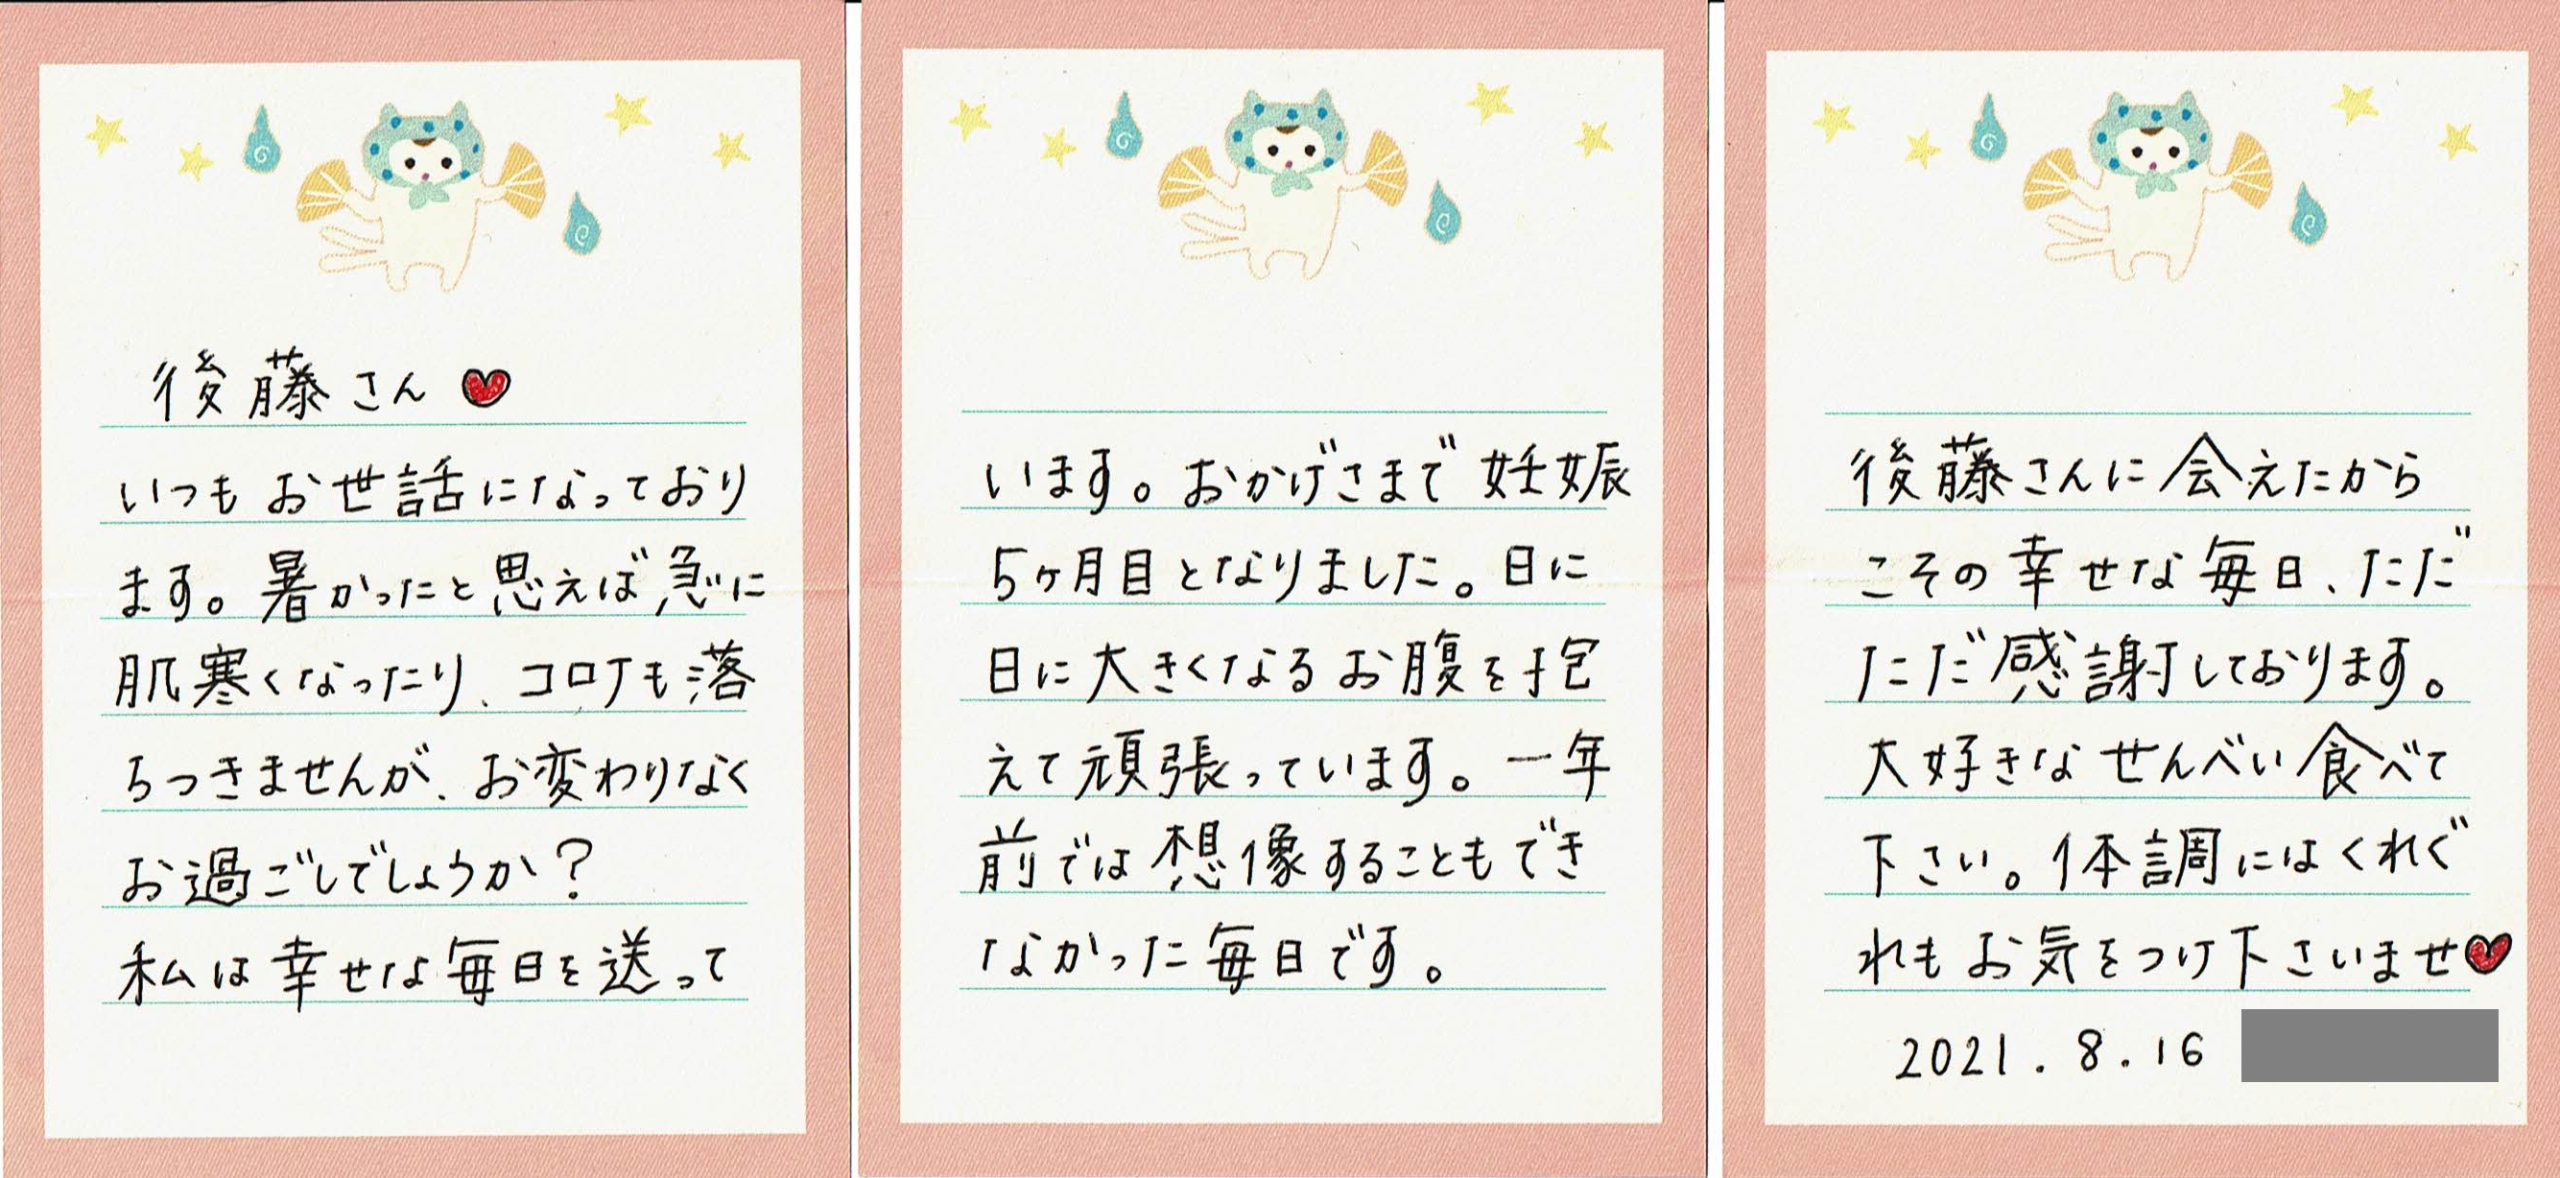 後藤さん
いつもお世話になっており
ます。暑かったと思えば急に
肌寒くなったり、コロナも落
ちつきませんが、お変わりなく
お過ごしでしょうか？
私は幸せな毎日を送って
います。おかげさまで妊娠
5ヶ月目となりました。日に
日に大きくなるお腹を抱
えて頑張っています。一年
前では想像することもでき
なかった毎日です。
後藤さんに会えたから
こその幸せな毎日、ただ
ただ感謝しております。
大好きなせんべい食べて
下さい。体調にはくれぐ
れもお気をつけ下さいませ
2021.8.16